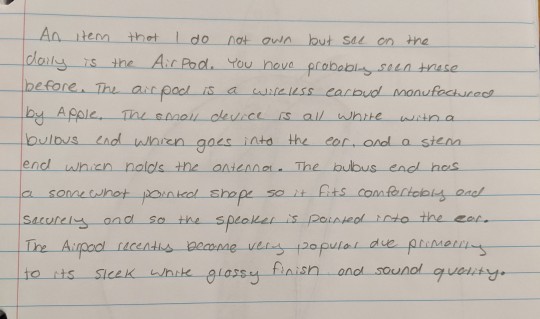 An item that I do not own but see on the
daily is the AirPod. You have probably seen these
before. The airpod is a wireless earbud manufactured
by Apple. The small device is all white with a
bulbus end which goes into the ear, and a stem
end which holds the antenna. The bulbus end has
a somewhat pointed shape so it fits comfortably and
securely and so the speaker is pointed into the ear.
The Airpod recently become very popular due primarily
to its sleek white glossy finish and sound quality.